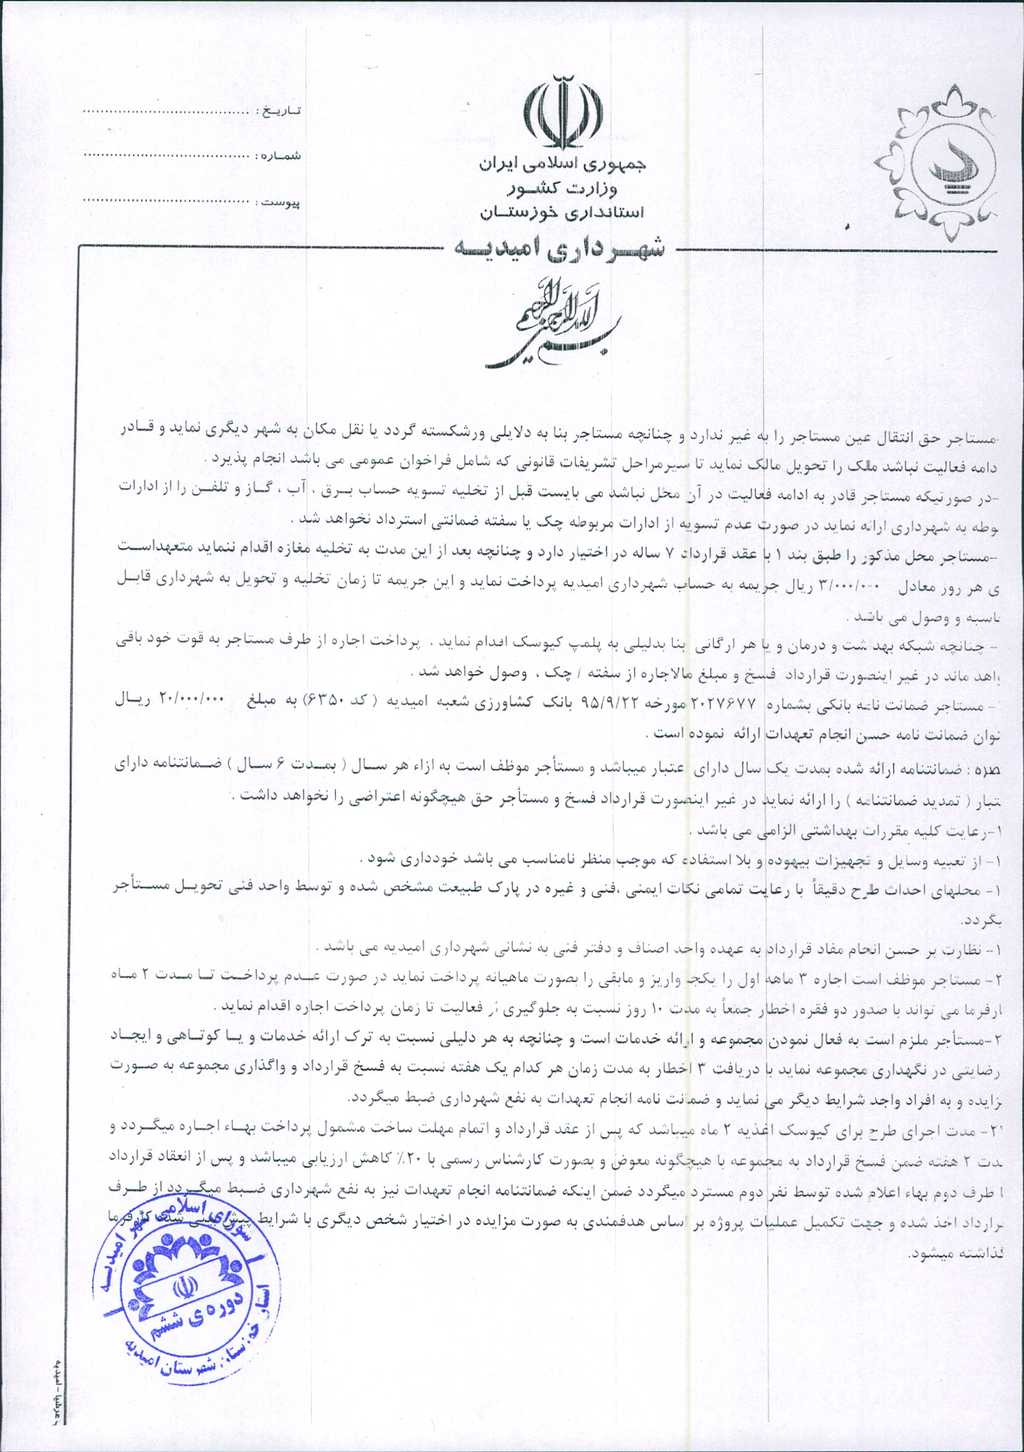 تاریخ : ..............................
شماره : ..............................
پیوست : ..............................
جمهوری اسلامی ایران
وزارت کشور
استانداری خوزستان
شهرداری امیدیه
بسم الله الرحمن الرحیم
-مستاجر حق انتقال عین مستاجر را به غیر ندارد و چنانچه مستاجر بنا به دلایلی ورشکسته گردد یا نقل مکان به شهر دیگری نماید و قادر
دامه فعالیت نباشد مالک را تحویل مالک نماید تا سیرمراحل تشریفات قانونی که شامل فراخوان عمومی می باشد انجام پذیرد .
-در صورتیکه مستاجر قادر به ادامه فعالیت در آن محل نباشد می بایست قبل از تخلیه تسویه حساب برق ، آب ، گاز و تلفن را از ادارات
بوطه به شهرداری ارائه نماید در صورت عدم تسویه از ادارات مربوطه چک یا سفته ضمانتی استرداد نخواهد شد .
-مستاجر محل مذکور را طبق بند ۱ با عقد قرارداد ۷ ساله در اختیار دارد و چنانچه بعد از این مدت به تخلیه مغازه اقدام ننماید متعهداست
ی هر روز معادل ۳/۰۰۰/۰۰۰ ریال جریمه به حساب شهرداری امیدیه پرداخت نماید و این جریمه تا زمان تخلیه و تحویل به شهرداری قابل
ناسبه و وصول می باشد .
- چنانچه شبکه بهداشت و درمان و یا هر ارگانی بنا بدلیلی به پلمپ کیوسک اقدام نماید . پرداخت اجاره از طرف مستاجر به قوت خود باقی
واهد ماند در غیر اینصورت قرارداد فسخ و مبلغ مالاجاره از سفته / چک ، وصول خواهد شد .
- مستاجر ضمانت نامه بانکی بشماره ۲۰۲۷۶۷۷ مورخه ۹۵/۹/۲۲ بانک کشاورزی شعبه امیدیه ( کد ۶۳۵۰) به مبلغ ۲۰/۰۰۰/۰۰۰ ریال
نوان ضمانت نامه حسن انجام تعهدات ارائه نموده است .
صره : ضمانتنامه ارائه شده بمدت یک سال دارای اعتبار میباشد و مستأجر موظف است به ازاء هر سال ( بمدت ۶ سال ) ضمانتنامه دارای
تبار ( تمدید ضمانتنامه ) را ارائه نماید در غیر اینصورت قرارداد فسخ و مستأجر حق هیچگونه اعتراضی را نخواهد داشت .
۱-رعایت کلیه مقررات بهداشتی الزامی می باشد .
۱- از تعبیه وسایل و تجهیزات بیهوده و بلا استفاده که موجب منظر نامناسب می باشد خودداری شود .
۱- محلهای احداث طرح دقیقاً با رعایت تمامی نکات ایمنی ،فنی و غیره در پارک طبیعت مشخص شده و توسط واحد فنی تحویل مستأجر
یگردد.
۱- نظارت بر حسن انجام مفاد قرارداد به عهده واحد اصناف و دفتر فنی به نشانی شهرداری امیدیه می باشد .
۲- مستاجر موظف است اجاره ۳ ماهه اول را یکجا واریز و مابقی را بصورت ماهیانه پرداخت نماید در صورت عدم پرداخت تا مدت ۲ ماه
ارفرما می تواند با صدور دو فقره اخطار جمعاً به مدت ۱۰ روز نسبت به جلوگیری از فعالیت تا زمان پرداخت اجاره اقدام نماید .
۲-مستأجر ملزم است به فعال نمودن مجموعه و ارائه خدمات است و چنانچه به هر دلیلی نسبت به ترک ارائه خدمات و یا کوتاهی و ایجاد
رضایتی در نگهداری مجموعه نماید با دریافت ۳ اخطار به مدت زمان هر کدام یک هفته نسبت به فسخ قرارداد و واگذاری مجموعه به صورت
زایده و به افراد واجد شرایط دیگر می نماید و ضمانت نامه انجام تعهدات به نفع شهرداری ضبط میگردد.
۲- مدت اجرای طرح برای کیوسک اغذیه ۲ ماه میباشد که پس از عقد قرارداد و اتمام مهلت ساخت مشمول پرداخت بهاء اجاره میگردد و
دت ۲ هفته ضمن فسخ قرارداد به مجموعه با هیچگونه معوض و بصورت کارشناس رسمی با ۲۰٪ کاهش ارزیابی میباشد و پس از انعقاد قرارداد
ا طرف دوم بهاء اعلام شده توسط نفر دوم مسترد میگردد ضمن اینکه ضمانتنامه انجام تعهدات نیز به نفع شهرداری ضبط میگردد از طرف
رارداد اخذ شده و جهت تکمیل عملیات پروژه بر اساس هدفمندی به صورت مزایده در اختیار شخص دیگری با شرایط پیش بینی شده کارفرما
گذاشته میشود.
شورای اسلامی شهر امیدیه
دوره ی ششم
استان خوزستان شهرستان امیدیه